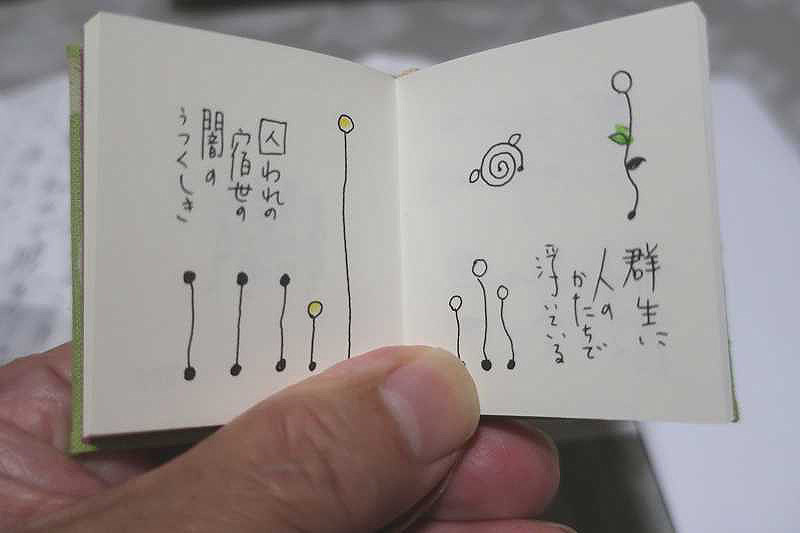 群生に
人の
かたちで
浮いている
囚われの
宿世の
闇の
うつくしき